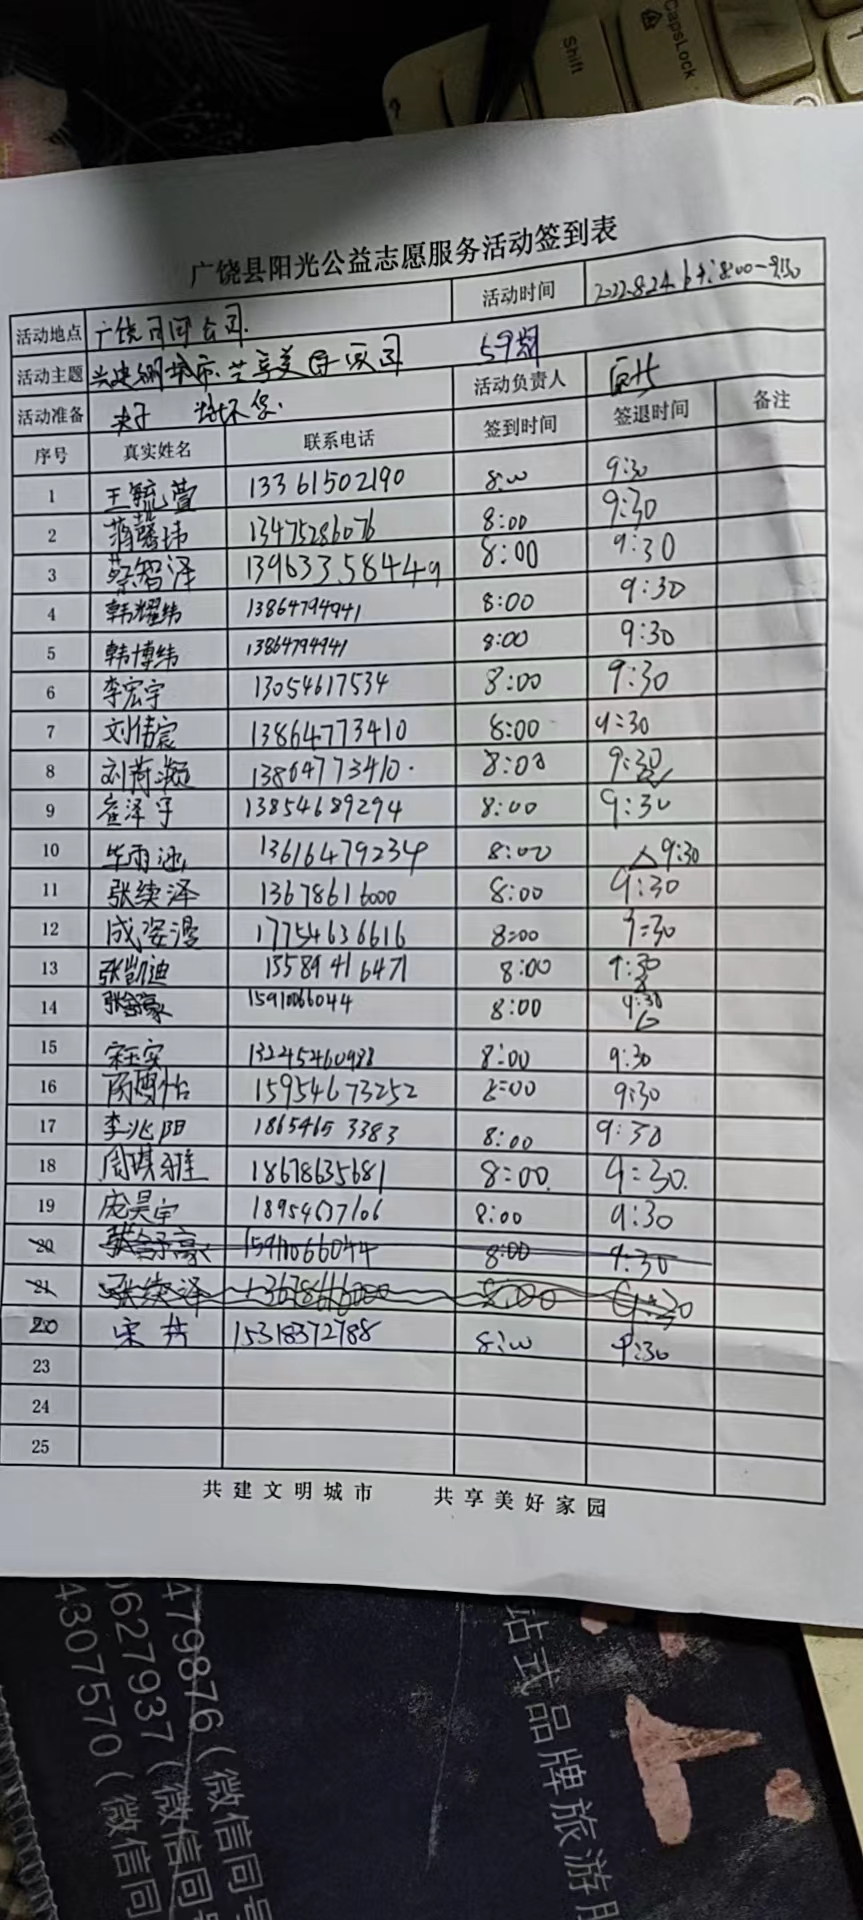 CapsLock
Shift
广饶县阳光公益志愿服务活动签到表
活动地点 广饶 公司 活动时间 2022.8.24. 8:00-9:30
活动主题 共建 城市. 共享美好家园 59期
活动准备 夹子 活动负责人
序号 真实姓名 联系电话 签到时间 签退时间 备注
1 王毓萱 13361502190 8:00 9:30
2 13475286076 8:00 9:30
3 蔡智泽 13963358449 8:00 9:30
4 韩耀纬 13864794941 8:00 9:30
5 韩博纬 13864794941 8:00 9:30
6 李宏宇 13054617534 8:00 9:30
7 刘倩宸 13864773410 8:00 9:30
8 刘荷凝 13864773410. 8:00 9:30
9 崔泽宇 13854689294 8:00 9:30
10 毕雨涵 13616479234 8:00 9:30
11 张续泽 13678616000 8:00 9:30
12 成姿漫 17754636616 8:00 9:30
13 张凯迪 13589416471 8:00 9:30
14 15910066044 8:00 9:30
15 宋玉实 13245460988 8:00 9:30
16 15954673252 8:00 9:30
17 李兆阳 18654653383 8:00 9:30
18 周琪雅 18678635681 8:00. 9:30.
19 庞昊宇 18954637106 8:00 9:30
20 15911066044 8:00 9:30
21 张续泽 13678616000 8:00 9:30
20 宋 15318372788 8:00 9:30
23
24
25
共建文明城市 共享美好家园
479876(微信同号
0627937(微信同号
4307570(微信同
站式品牌旅游服